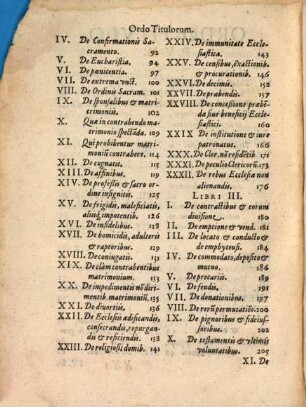 Ordo Titulorum.
IV. De Confirmationis Sa-
cramento. 92
V. De Eucharistia. 94
VI. De pœnitentia. 97
VII. De extrema vnct. 101
VIII. De Ordinis Sacram. 101
IX. De sponsalibus & matri-
trimoniis. 102
X. Qua in contrahendo ma-
trimonio spectāda. 103
XI. Qui prohibentur matri-
moniū contrahere. 114
XII. De cognatis. 115
XIII. De affinibus. 119
XIV. De professis & sacro or-
dine insignitis. 123
XV. De frigidis, maleficiatis,
aliisq́; impotentib. 126
XVI. De infidelibus. 128
XVII. De homicidis, adulteris
& raptoribus. 129
XVIII. De coniugatis. 131
XIX. De clàm contrahentibus
matrimonium. 133
XX. De impedimentis nō diri-
mentib. matrimoniū. 135
XXI. De diuortiis. 136
XXII. De Ecclesiis ædificandis,
consecrandis, repurgan-
dis & reficiendis. 138
XXIII. De religiosis domib. 141
XXIV. De immunitate Eccle-
siastica. 143
XXV. De censibus, exactionib.
& procurationib. 146
XXVI. De decimis. 152
XXVII. De præbendis. 157
XXVIII. De concessione præbēdæ
siue beneficij Eccle-
siastici. 160
XXIX De institutione & iure
patronatus. 166
XXX. De Cler. nō residētib. 171
XXXI. De peculio Clericorū. 173
XXXII. De rebus Ecclesiæ non
alienandis. 176
LIBRI III.
I. De contractibus & eorum
diuisione. 180
II. De emptione & vend. 181
III. De locato & conducto &
de emphyteusi. 184
IV. De commodato, deposito &
mutuo. 186
V. De precariis. 191
VI. De feudis. 191
VII. De donationibus. 197
VIII. De rerū permutatiōe. 200
IX. De pignoribus & fideius-
soribus. 202
X. De testamentis & vltimis
voluntatibus. 205
XI. De